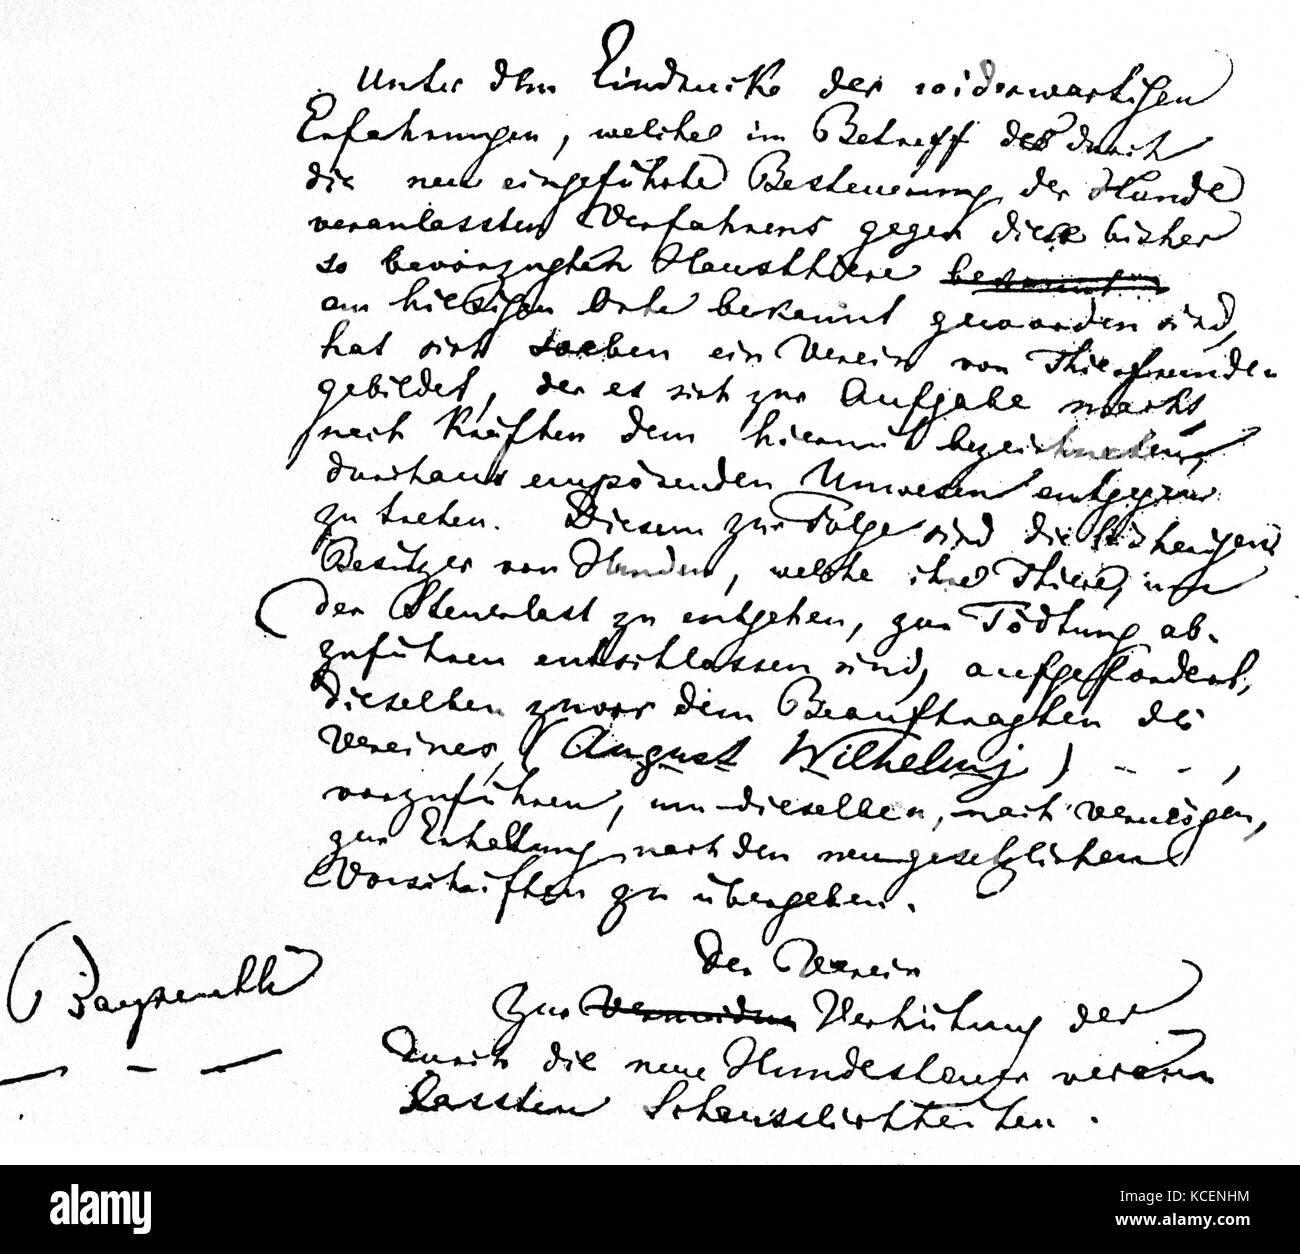 Unter dem Eindrucke der widerwärtigen
Erfahrungen, welche im Betreff des durch
die neu eingeführte Besteuerung der Hunde
veranlassten Verfahrens gegen diese bisher
so bevorzugten Hausthiere bekannt
am hiesigen Orte bekannt geworden sind,
hat sich soeben ein Verein von Thierfreunden
gebildet, der es sich zur Aufgabe macht
nach Kräften dem hiermit bezeichneten,
durchaus empörenden Unwesen entgegen
zu treten. Diesem zur Folge sind die bisherigen
Besitzer von Hunden, welche ihre Thiere, um
der Steuerlast zu entgehen, zur Tödtung ab-
zuführen entschlossen sind, aufgefordert,
dieselben zuvor dem Beauftragten des
Vereines, (August Wilhelmj) - - -,
vorzuführen, um dieselben, nach Vermögen,
zur Erhaltung nach den neugesetzlichen
Vorschriften zu übergeben.
Der Verein
zur Vermeidung Verhütung der
durch die neue Hundesteuer veran
lassten Scheusslichkeiten.
Bayreuth
alamy
Image ID: KCENHM
www.alamy.com